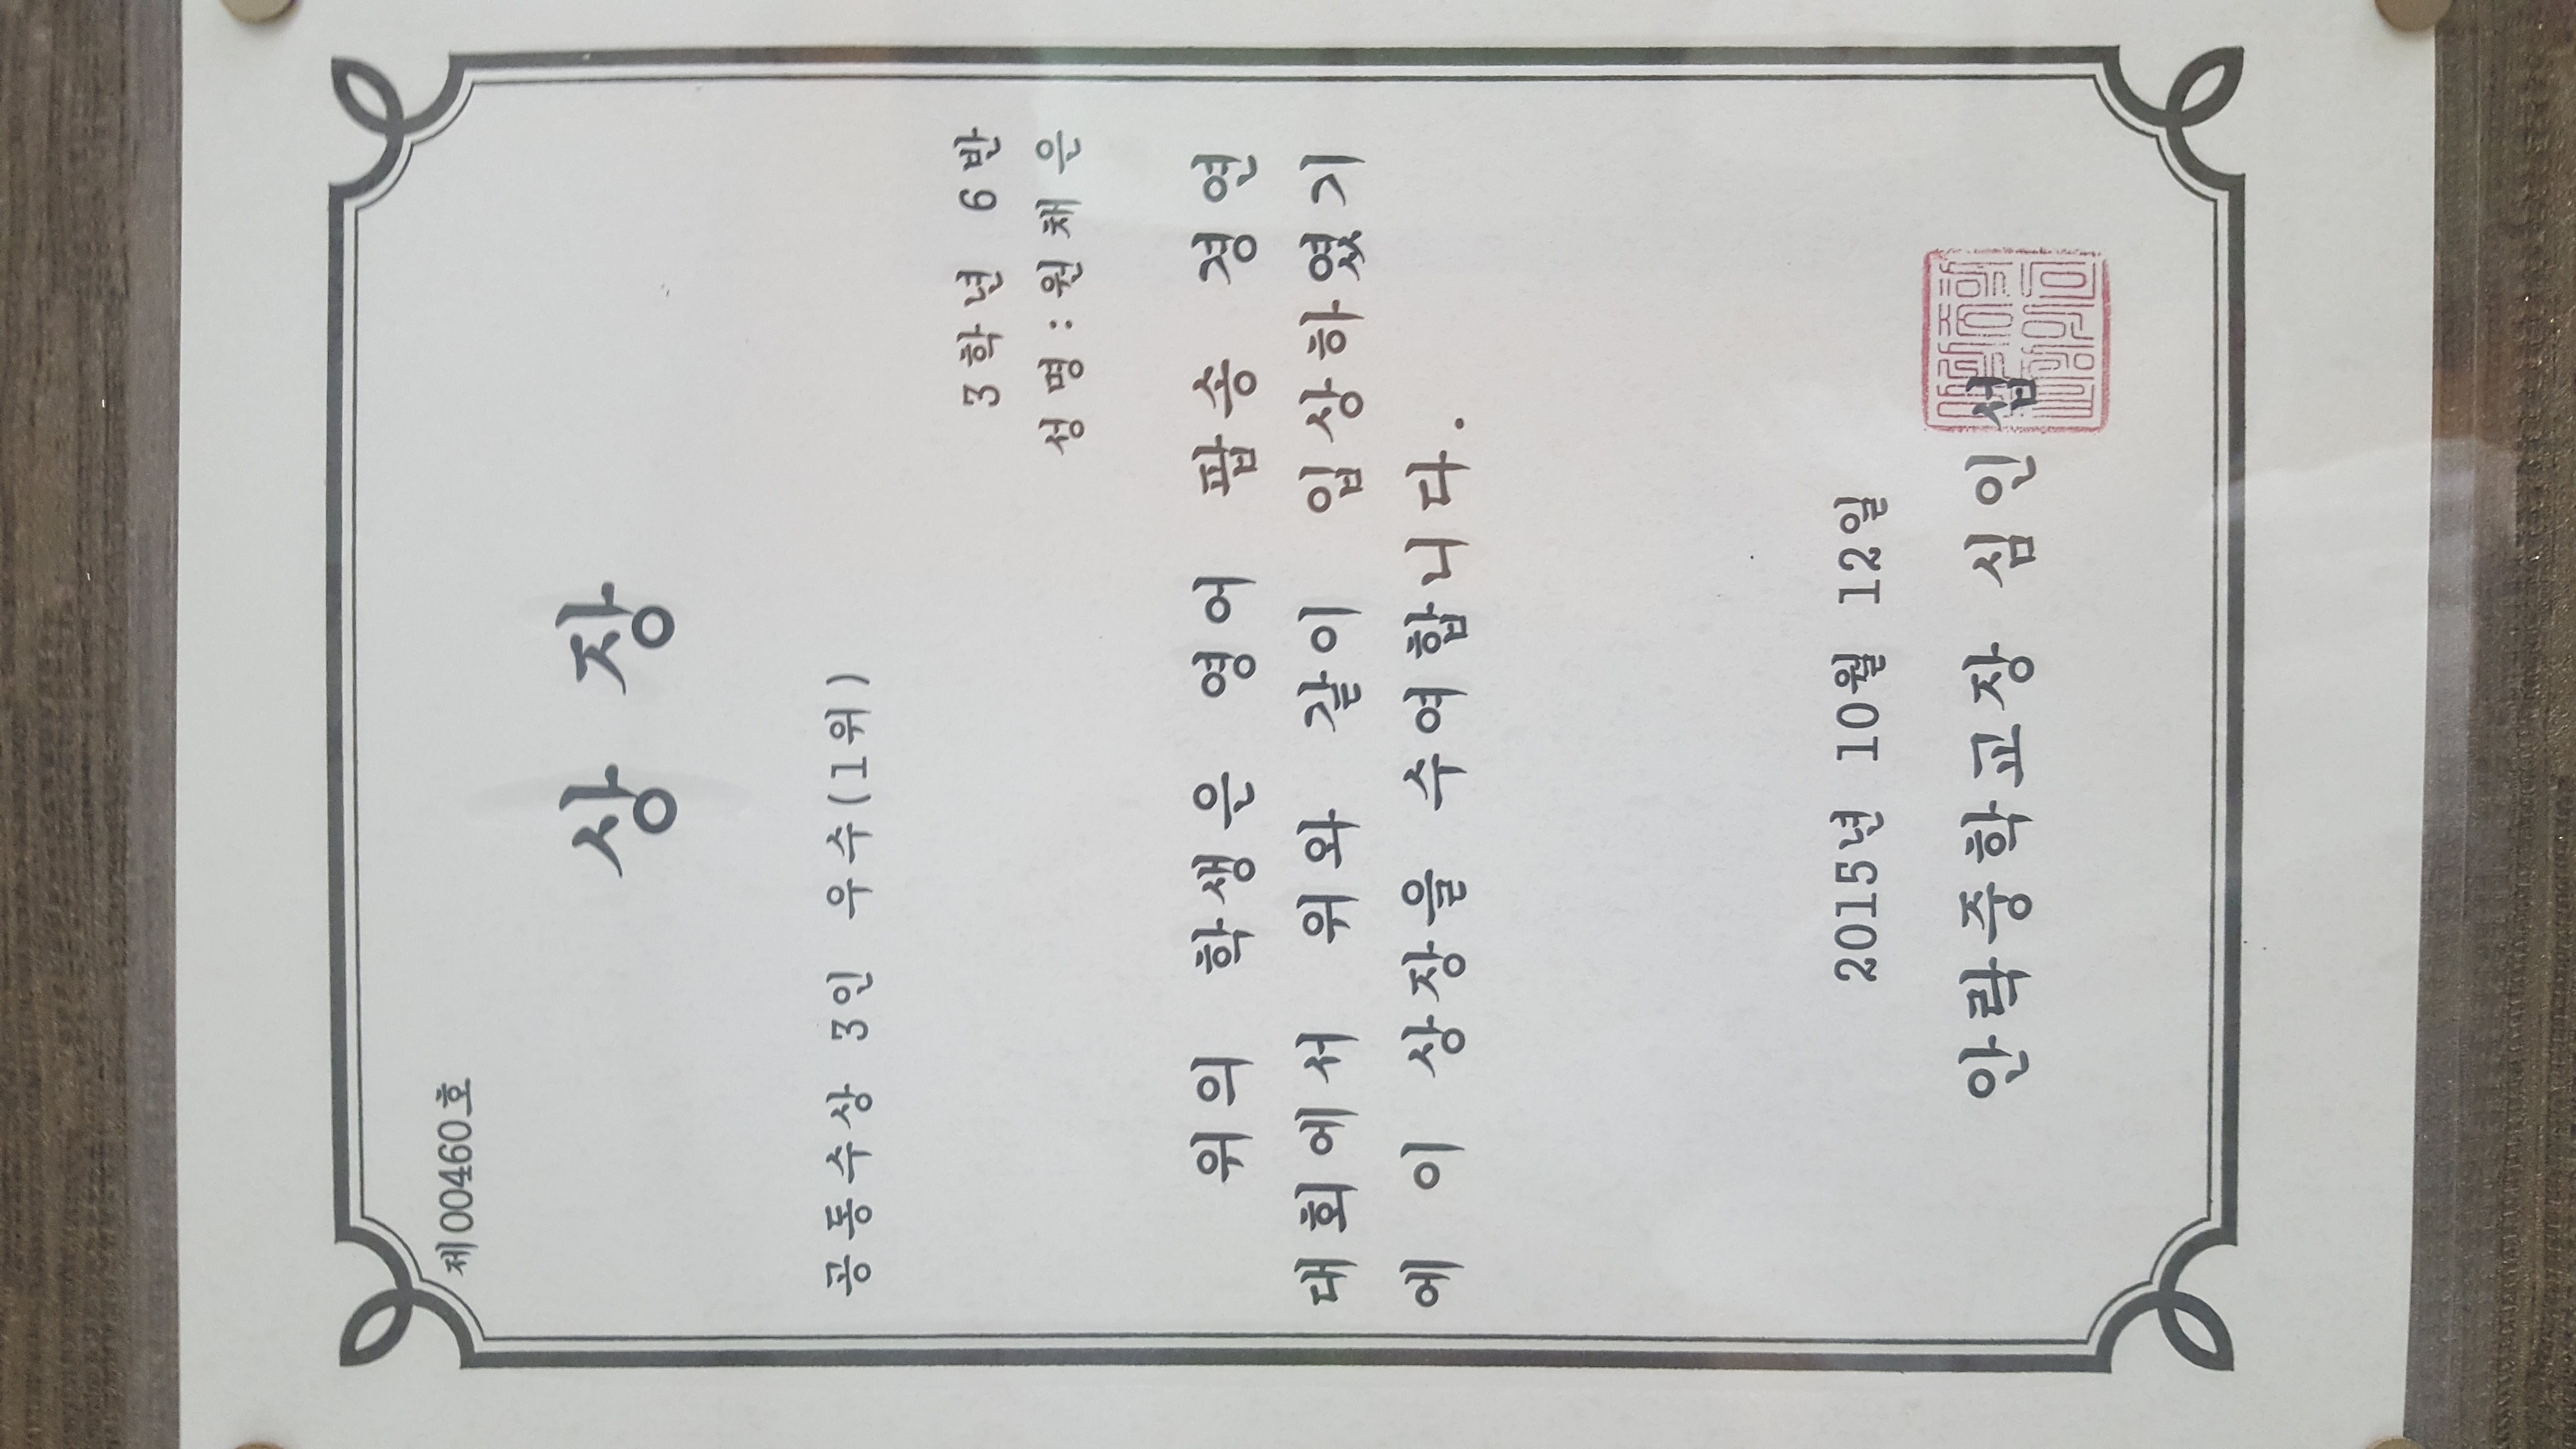 제00460호
상 장
공동수상 3인 우수(1위)
3학년 6반
성명:원채은
위의 학생은 영어 팝송 경연
대회에서 위와 같이 입상하였기
에 이 상장을 수여합니다.
2015년 10월 12일
안락중학교장 심인섭